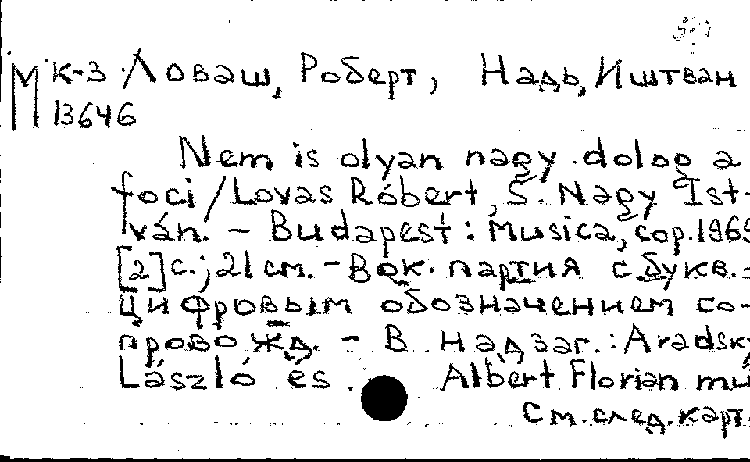 М к-3 Ловаш, Роберт, Надь, Иштван
13646
Nem is olyan nagy dolog a
foci / Lovas Róbert, S. Nagy Ist-
ván. - Budapest: Musica, cop. 1969
[2] с.; 21 см. - Вок. партия с букв.-
цифровым обозначением со-
провожд. - В надзаг.: Aradsky
László és Albert Florian mű
См. след. карт.